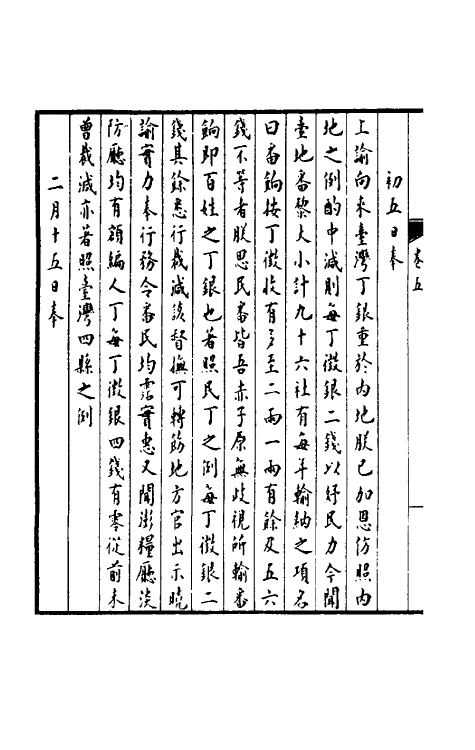 卷五
初五日奉
上諭向来臺灣丁銀重於内地朕已加恩仿照内
地之例酌中減則每丁徵銀二錢以紓民力今聞
臺地番黎大小計九十六社有每年輸納之項名
曰番餉按丁徵收有多至二兩一兩有餘及五六
錢不等者朕思民番皆吾赤子原無歧視所輸番
餉即百姓之丁銀也著照民丁之例每丁徵銀二
錢其餘悉行裁減該督撫可轉飭地方官出示曉
諭實力奉行務令番民均霑實惠又聞澎糧廳淡
防廳均有額編人丁每丁徵銀四錢有零從前未
曾裁減亦著照臺灣四縣之例
二月十五日奉